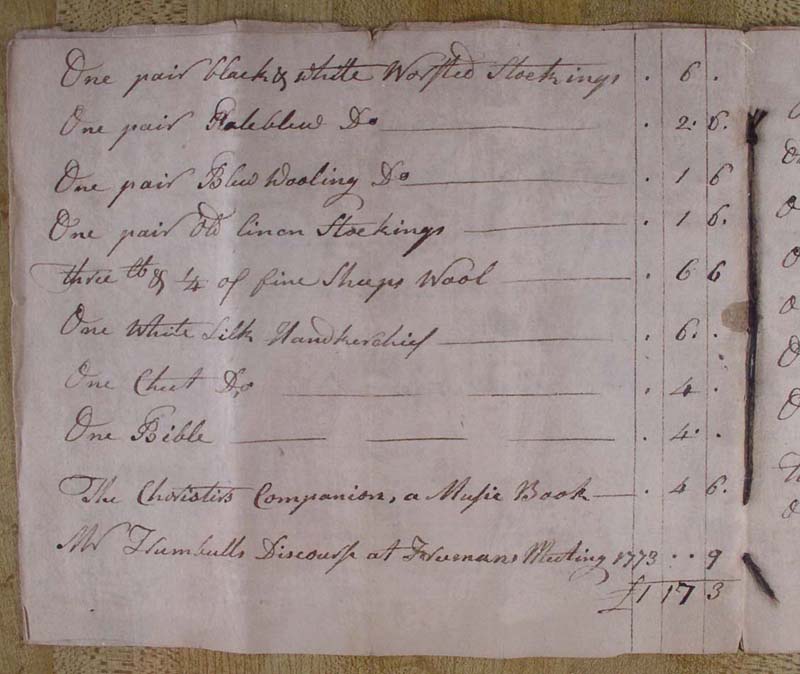 One pair black & white Worsted Stockings . 6 .
One pair Paleblew Do . 2 . 6 .
One pair Blew Wooling Do . 1 6
One pair Old linen Stockings . 1 6 .
three lb & 1/4 of fine Sheeps Wool . 6 6
One White Silk Handkerchief . 6 . .
One Chect Do . 4 .
One Bible . 4 .
The Choristers Companion, a Music Book . 4 6 .
Mr Trumbulls Discourse at Freemans Meeting 1773 . . 9
£1 17 3